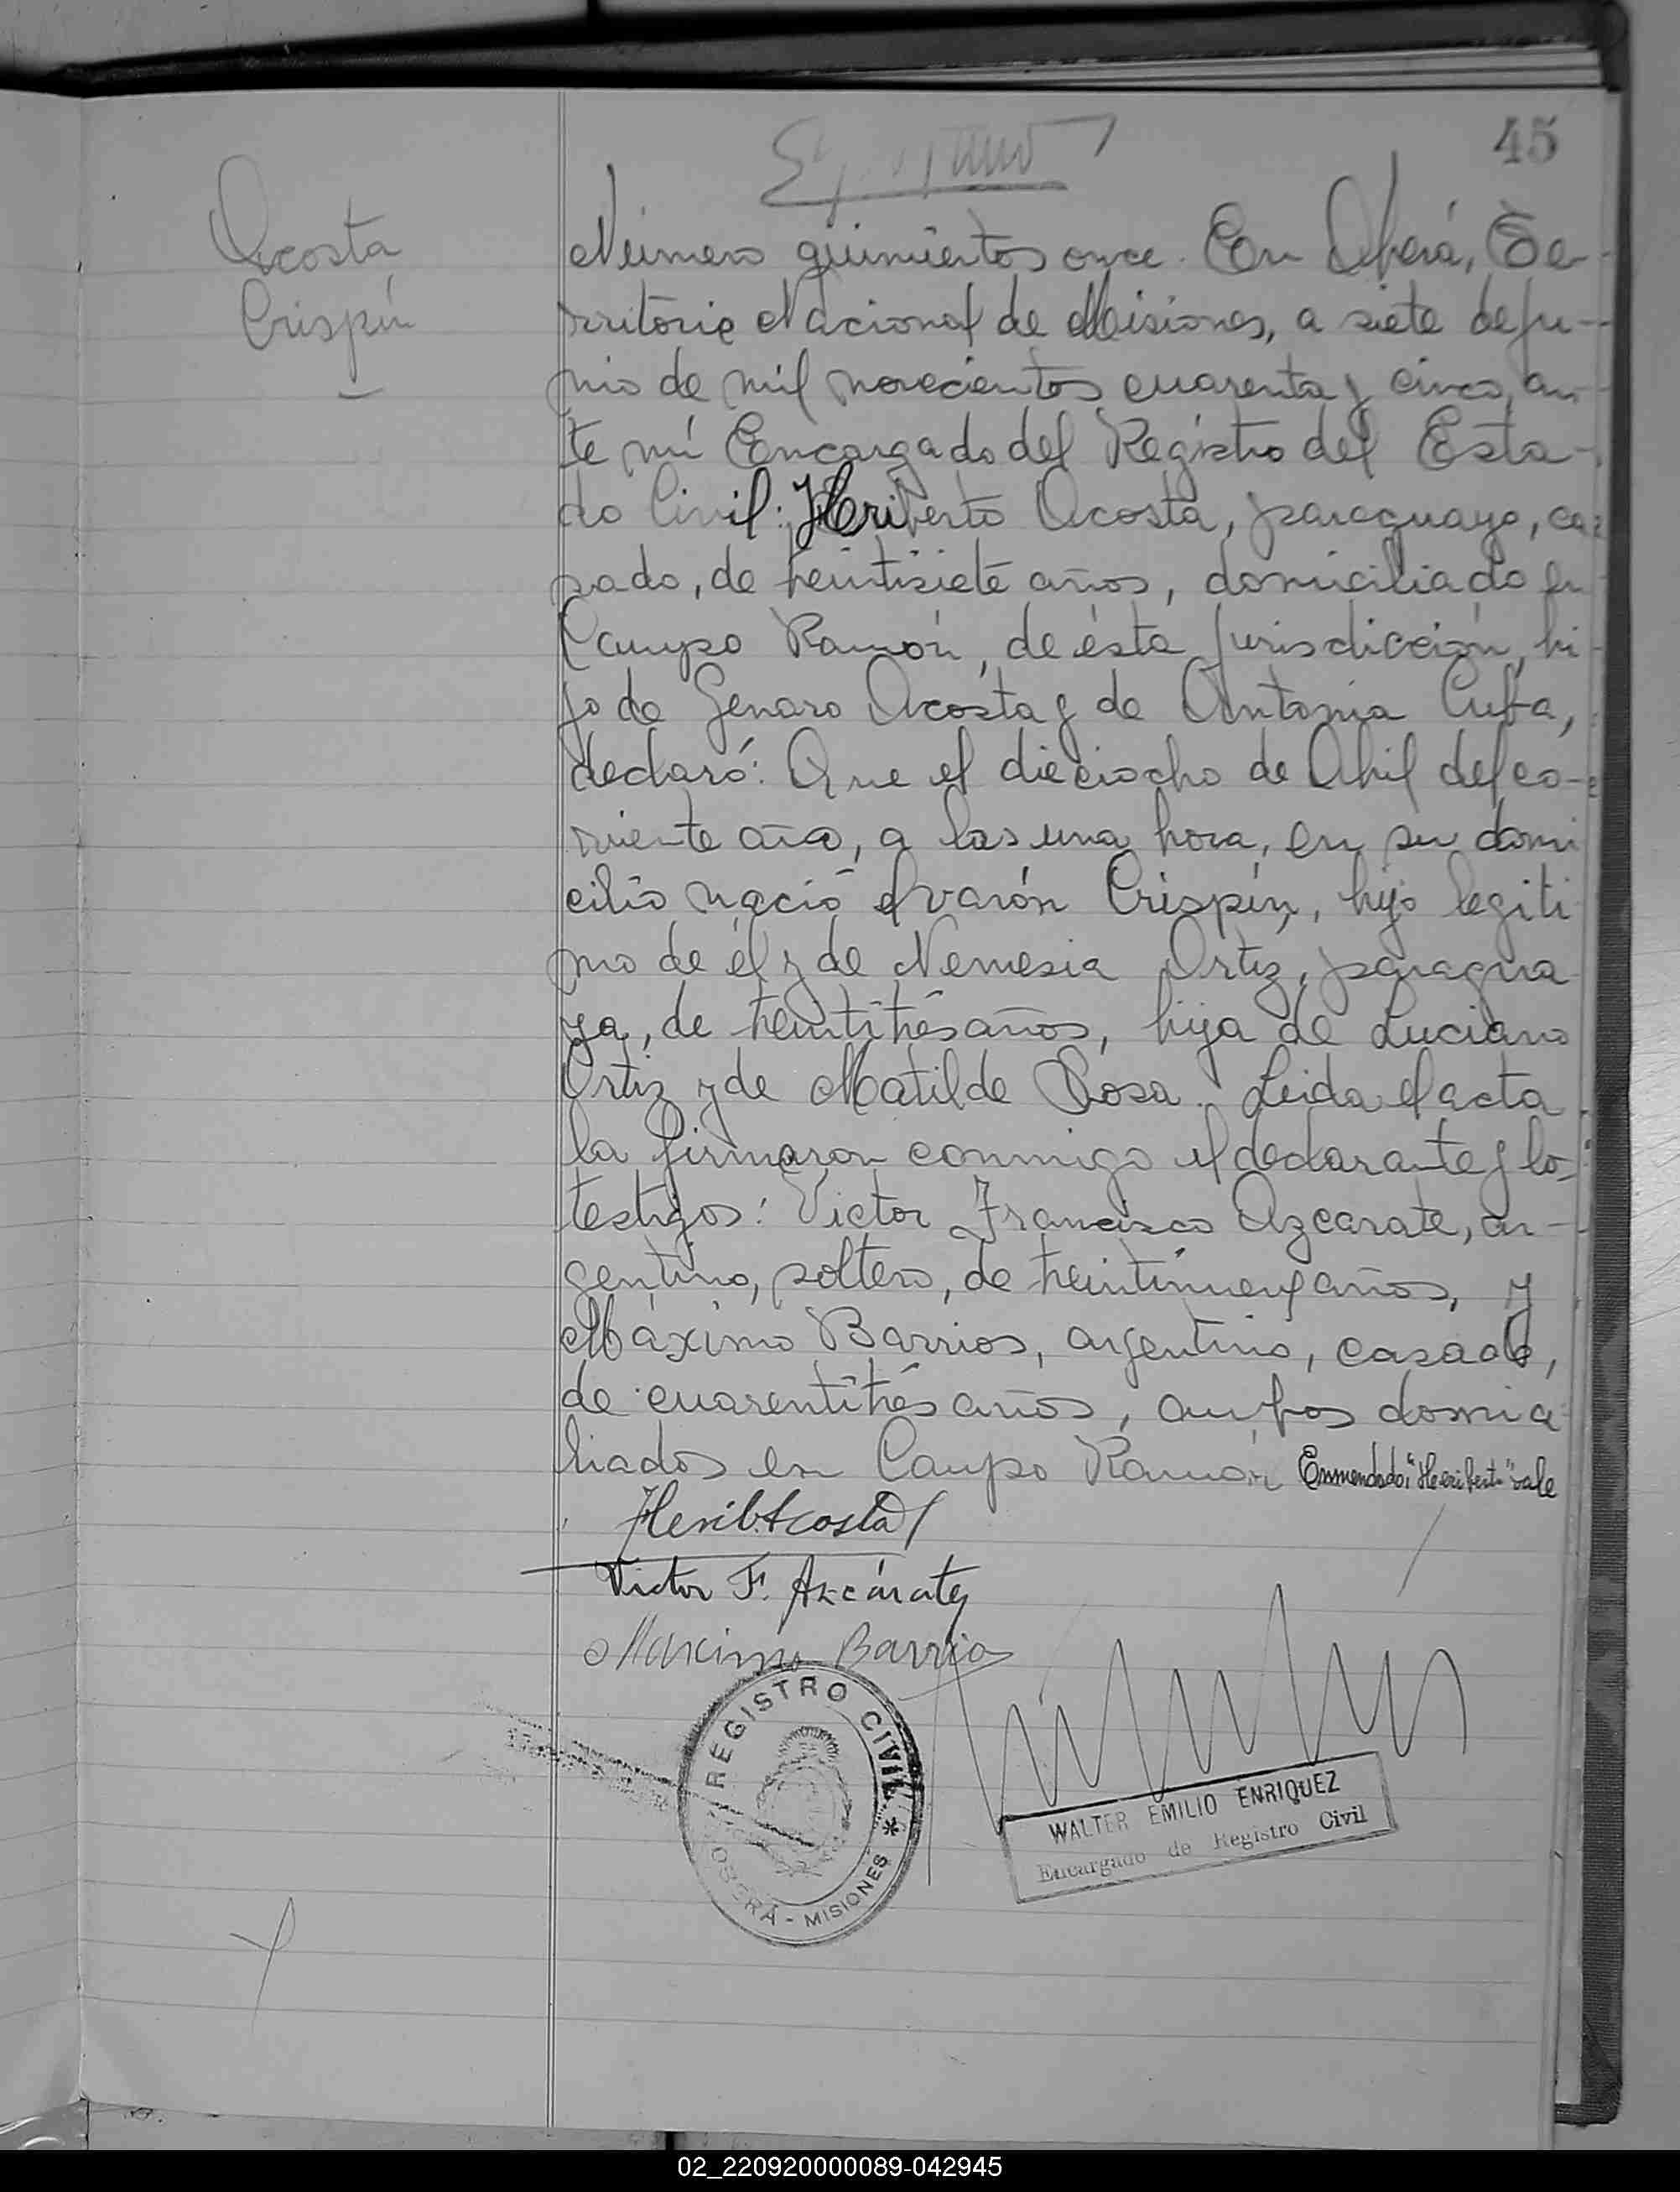 45
Acosta
Crispín
Número quinientos once. En Oberá, Te-
rritorio Nacional de Misiones, a siete de ju-
nio de mil novecientos cuarenta y cinco, an-
te mí Encargado del Registro del Esta-
do Civil: Heriberto Acosta, paraguayo, ca-
sado, de treintisiete años, domiciliado en
Campo Ramón, de ésta jurisdicción, hi-
jo de Genaro Acosta y de Antonia Cuba,
declaró: Que el dieciocho de Abril del co-
rriente año, a las una hora, en su domi
cilio nació el varón Crispín, hijo legiti
mo de él y de Nemesia Ortiz, paragua
ya, de treintitrés años, hija de Luciano
Ortiz y de Matilde Rosa. Leida el acta
la firmaron conmigo el declarante y los
testigos: Victor Francisco Azcarate, ar-
gentino, soltero, de treintinueve años, y
Máximo Barrios, argentino, casado,
de cuarentitrés años, ambos domici
liados en Campo Ramón Enmendado: "Heriberto" vale
Herib. Acosta
Victor F. Azcárate
Maximo Barrios
REGISTRO CIVIL
OBERÁ - MISIONES *
WALTER EMILIO ENRIQUEZ
Encargado de Registro Civil
02_220920000089-042945